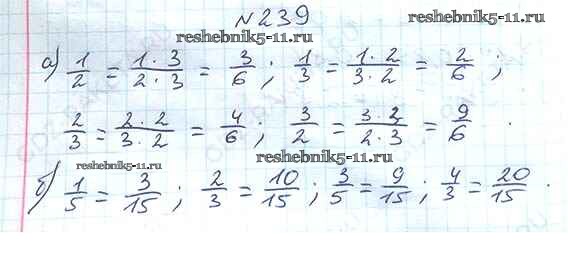 №239
reshebnik5-11.ru reshebnik5-11.ru
а) 1/2 = 1·3/2·3 = 3/6; 1/3 = 1·2/3·2 = 2/6;
2/3 = 2·2/3·2 = 4/6; 3/2 = 3·2/2·3 = 9/6.
reshebnik5-11.ru reshebnik5-11.ru
б) 1/5 = 3/15; 2/3 = 10/15; 3/5 = 9/15; 4/3 = 20/15.